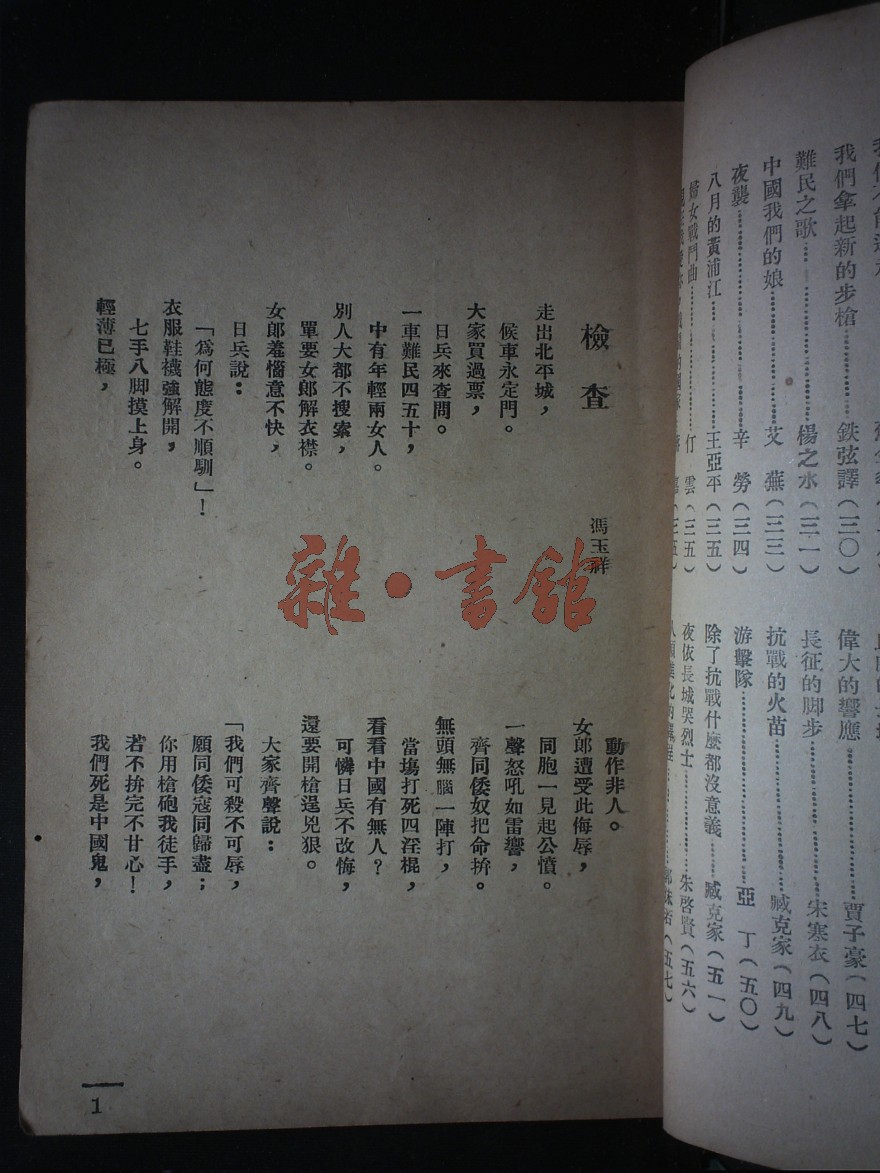 我們拿起新的步槍……鉄弦譯(三〇)
難民之歌……楊之水(三一)
中國我們的娘……艾　蕪(三三)
夜襲……辛　勞(三四)
八月的黃浦江……王亞平(三五)
婦女戰鬥曲……仃　雲(三五)
偉大的響應……賈子豪(四七)
長征的脚步……宋寒衣(四八)
抗戰的火苗……臧克家(四九)
游擊隊……亞　丁(五〇)
除了抗戰什麼都沒意義……臧克家(五一)
夜依長城哭烈士……朱啓賢(五六)
郭沫若(五七)
檢查
馮玉祥
走出北平城，
候車永定門。
大家買過票，
日兵來查問。
一車難民四五十，
中有年輕兩女人。
別人大都不搜索，
單要女郎解衣襟。
女郎羞惱意不快，
日兵說：
「爲何態度不順馴」！
衣服鞋襪強解開，
七手八脚摸上身。
輕薄已極，
動作非人。
女郎遭受此侮辱，
同胞一見起公憤。
一聲怒吼如雷響，
齊同倭奴把命拚。
無頭無腦一陣打，
當場打死四淫棍，
看看中國有無人？
可憐日兵不改悔，
還要開槍逞兇狠。
大家齊聲說：
「我們可殺不可辱，
願同倭寇同歸盡；
你用槍砲我徒手，
若不拚完不甘心！
我們死是中國鬼，
1
雜·書館